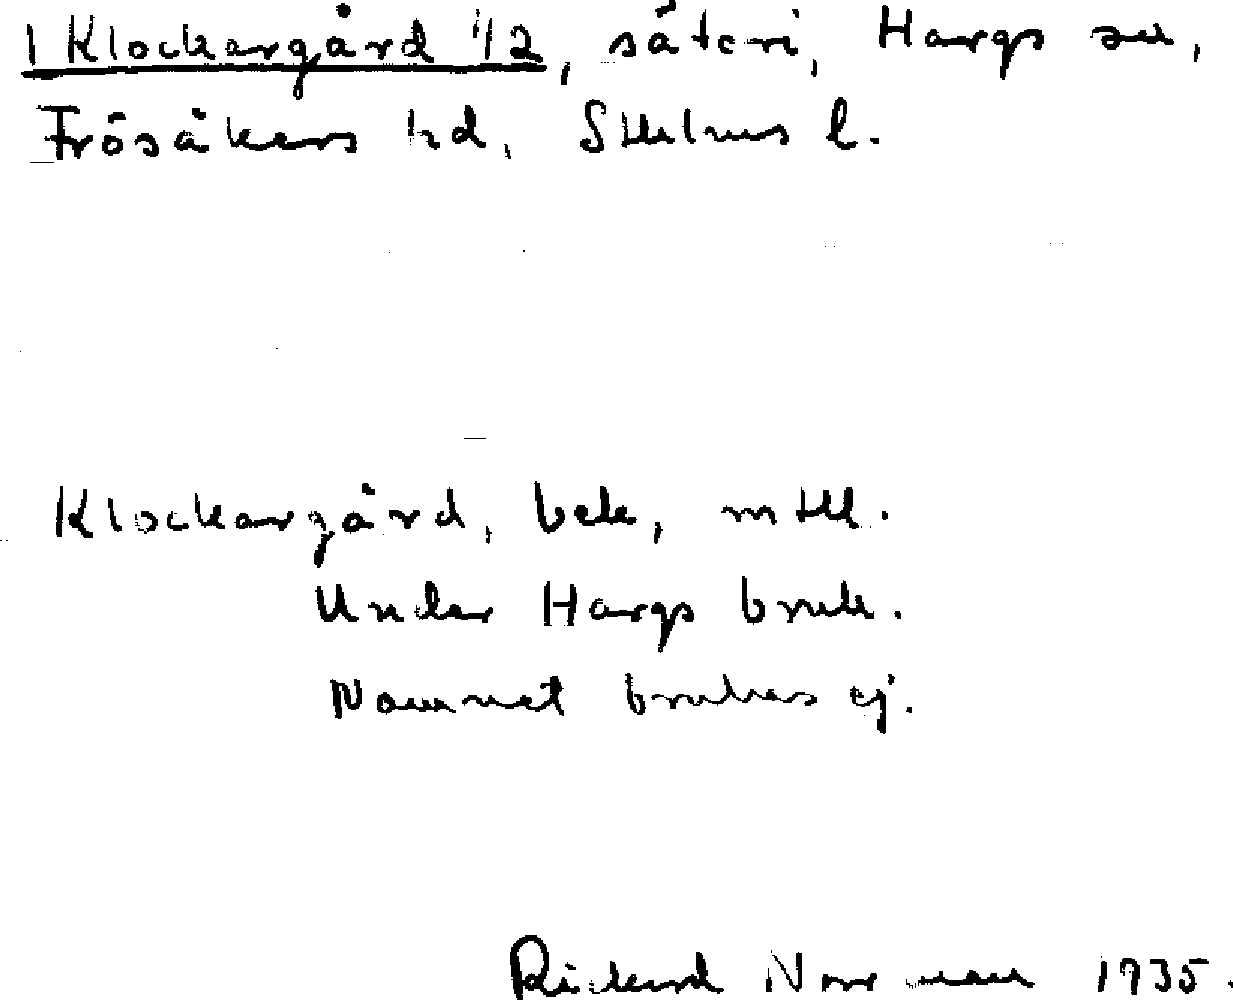 1 Klockargård 1/2, säteri, Hargs sn,
Frösåkers hd, Sthlms l.
Klockargård, bek, mtll.
Under Hargs bruk.
Namnet brukas ej.
Rickard Norrman 1935.